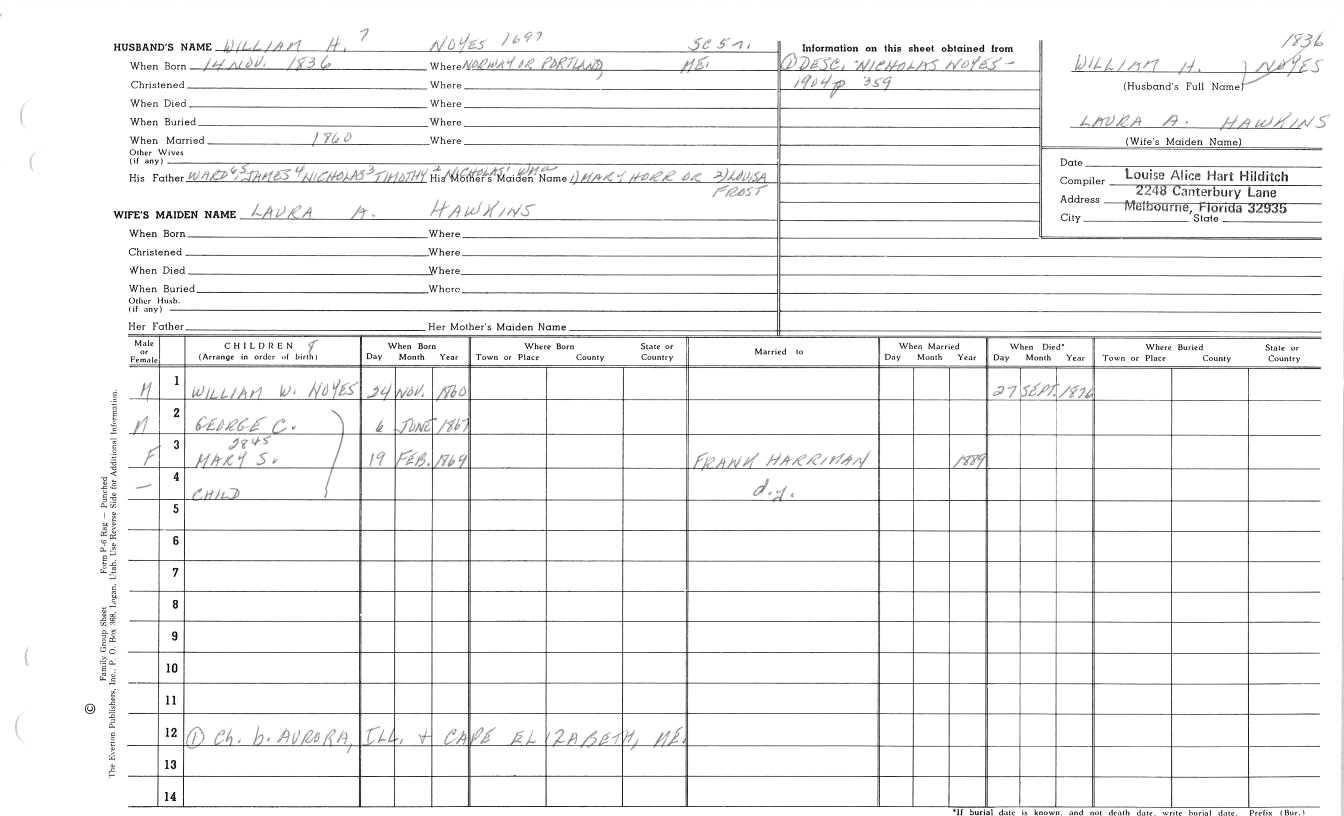 HUSBAND'S NAME WILLIAM H. 7 NOYES 1697
When Born 14 NOV. 1836 Where NORWAY OR PORTLAND, ME.
Christened Where
When Died Where
When Buried Where
When Married 1860 Where
Other Wives
(if any)
His Father WARD JAMES 4 NICHOLAS 3 TIMOTHY 2 NICHOLAS His Mother's Maiden Name 1) MARY HORR OR 2) LOUISA
FROST
WIFE'S MAIDEN NAME LAURA A. HAWKINS
When Born Where
Christened Where
When Died Where
When Buried Where
Other Husb.
(if any)
Her Father Her Mother's Maiden Name
Information on this sheet obtained from
① DESC. NICHOLAS NOYES -
1904 p 359
1836
WILLIAM H. NOYES
(Husband's Full Name)
LAURA A. HAWKINS
(Wife's Maiden Name)
Date
Compiler Louise Alice Hart Hilditch
Address 2248 Canterbury Lane
Melbourne, Florida 32935
City State
Male or Female CHILDREN (Arrange in order of birth) When Born Day Month Year Where Born Town or Place County State or Country Married to When Married Day Month Year When Died* Day Month Year Where Buried Town or Place County State or Country
M 1 WILLIAM W. NOYES 24 NOV. 1860 27 SEPT. 1876
M 2 GEORGE C. 6 JUNE 1867
2845
F 3 MARY S. 19 FEB. 1869 FRANK HARRIMAN 1889
— 4 CHILD d.y.
5
6
7
8
9
10
11
12 ① Ch. b. AURORA, ILL. + CAPE ELIZABETH, ME.
13
14
*If burial date is known, and not death date, write burial date. Prefix (Bur.)
© Family Group Sheet Form P-6 Rag — Punched
The Everton Publishers, Inc., P. O. Box 368, Logan, Utah. Use Reverse Side for Additional Information.